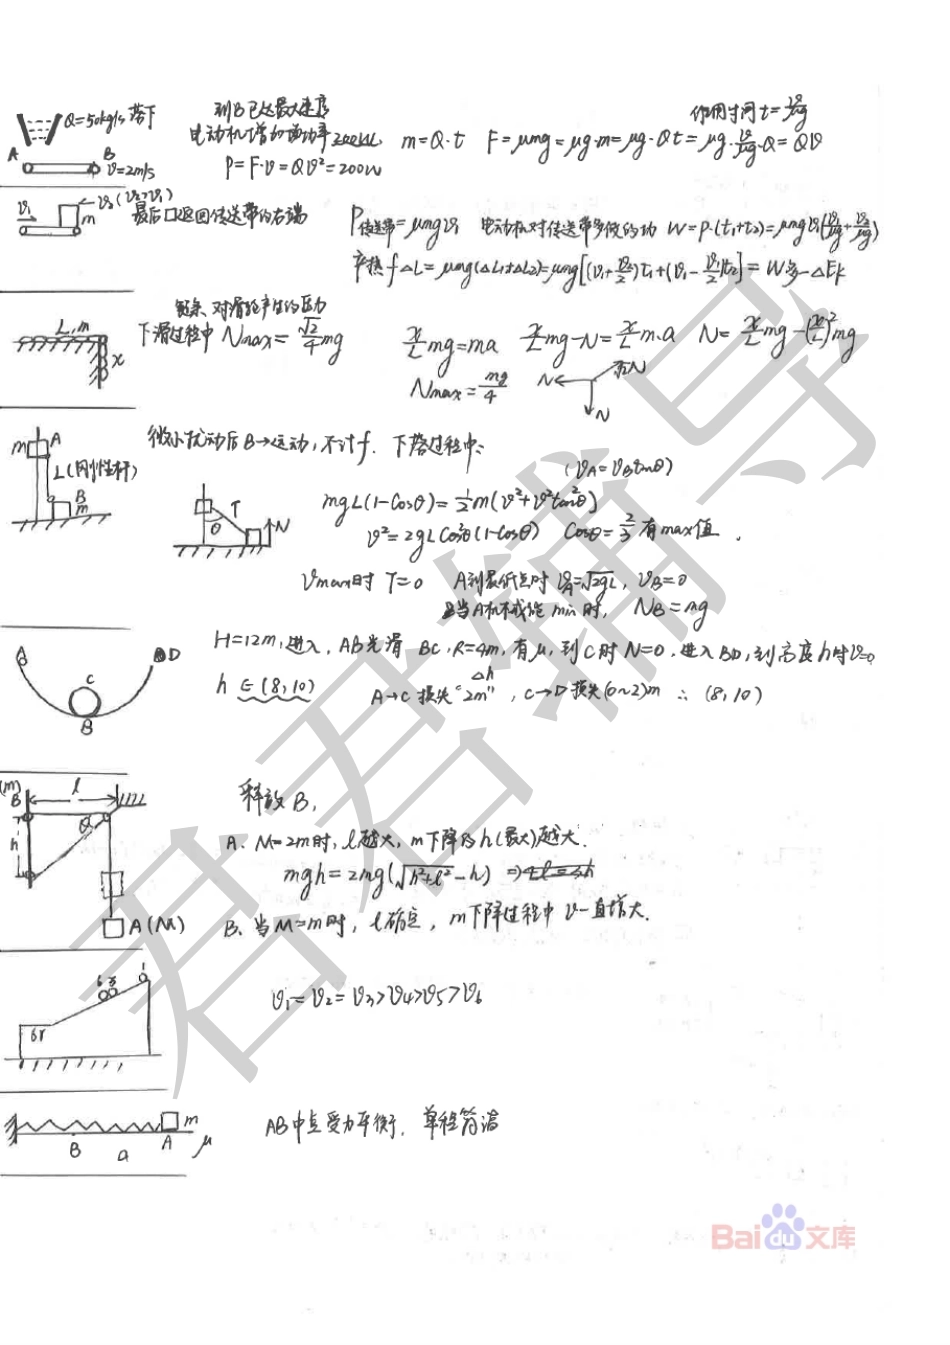 Q=50kg/s 落下
到B已达最大速度
作用时间 t=v/μg
电动机增加的功率200W
m=Q·t F=μmg=μg·m=μg·Qt=μg·v/μg·Q=Qv
A B v=2m/s
P=F·v=Qv²=200W
v₁ v₂(v₂>v₁) m
最后口返回传送带的右端
P传送带=μmgv₁ 电动机对传送带多做的功 W=P·(t₁+t₂)=μmgv₁(v₁/μg+v₂/μg)
产热 f△L=μmg(△L₁+△L₂)=μmg[(v₁+v₂/2)t₁+(v₁-v₁/2)t₂]=W多-△Ek
链条、对滑轮产生的压力
L,m x
下滑过程中 Nmax=√2/4mg
x/L mg=ma x/L mg-N=x/L m·a N=x/L mg-(x/L)²mg
Nmax=mg/4 N √2N N
m A L(刚性杆) B m
微小扰动后B→运动,不计f. 下落过程中:
(vA=vBtanθ)
T θ N
mgL(1-cosθ)=1/2m(v²+v²tan²θ)
v²=2gLcos²θ(1-cosθ) cosθ=2/3有max值.
vmax时 T=0 A到最低点时 vA=√2gL, vB=0
当A机械能min时, NB=mg
A C B D
H=12m,进入, AB光滑 BC,R=4m,有μ,到C时N=0,进入BD,到高度h时v=0
h∈(8,10) A→C损失"2m" △h, C→D损失(0~2)m ∴(8,10)
(m) B l θ h A(M)
释放B,
A、M=2m时,l越大,m下降的h(最大)越大.
mgh=2mg(√h²+l²-h)
B、当M=m时,l确定,m下降过程中v一直增大.
6 5 1 6r
v₁=v₂=v₃>v₄>v₅>v₆
m B a A μ
AB中点受力平衡,单程简谐
君君辅导
Bai du 文库